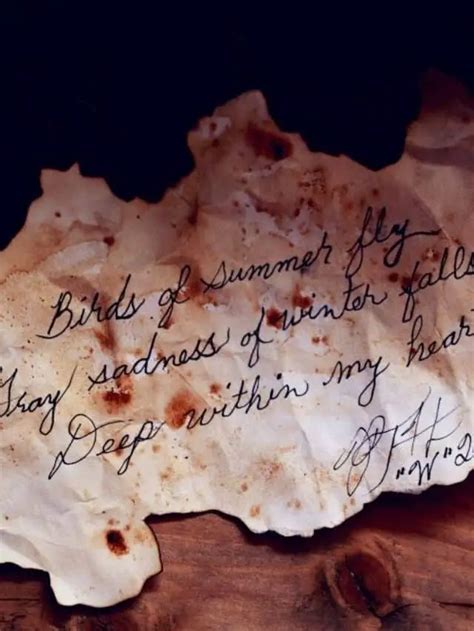 Birds of summer fly
Gray sadness of winter falls
Deep within my heart
"W"2